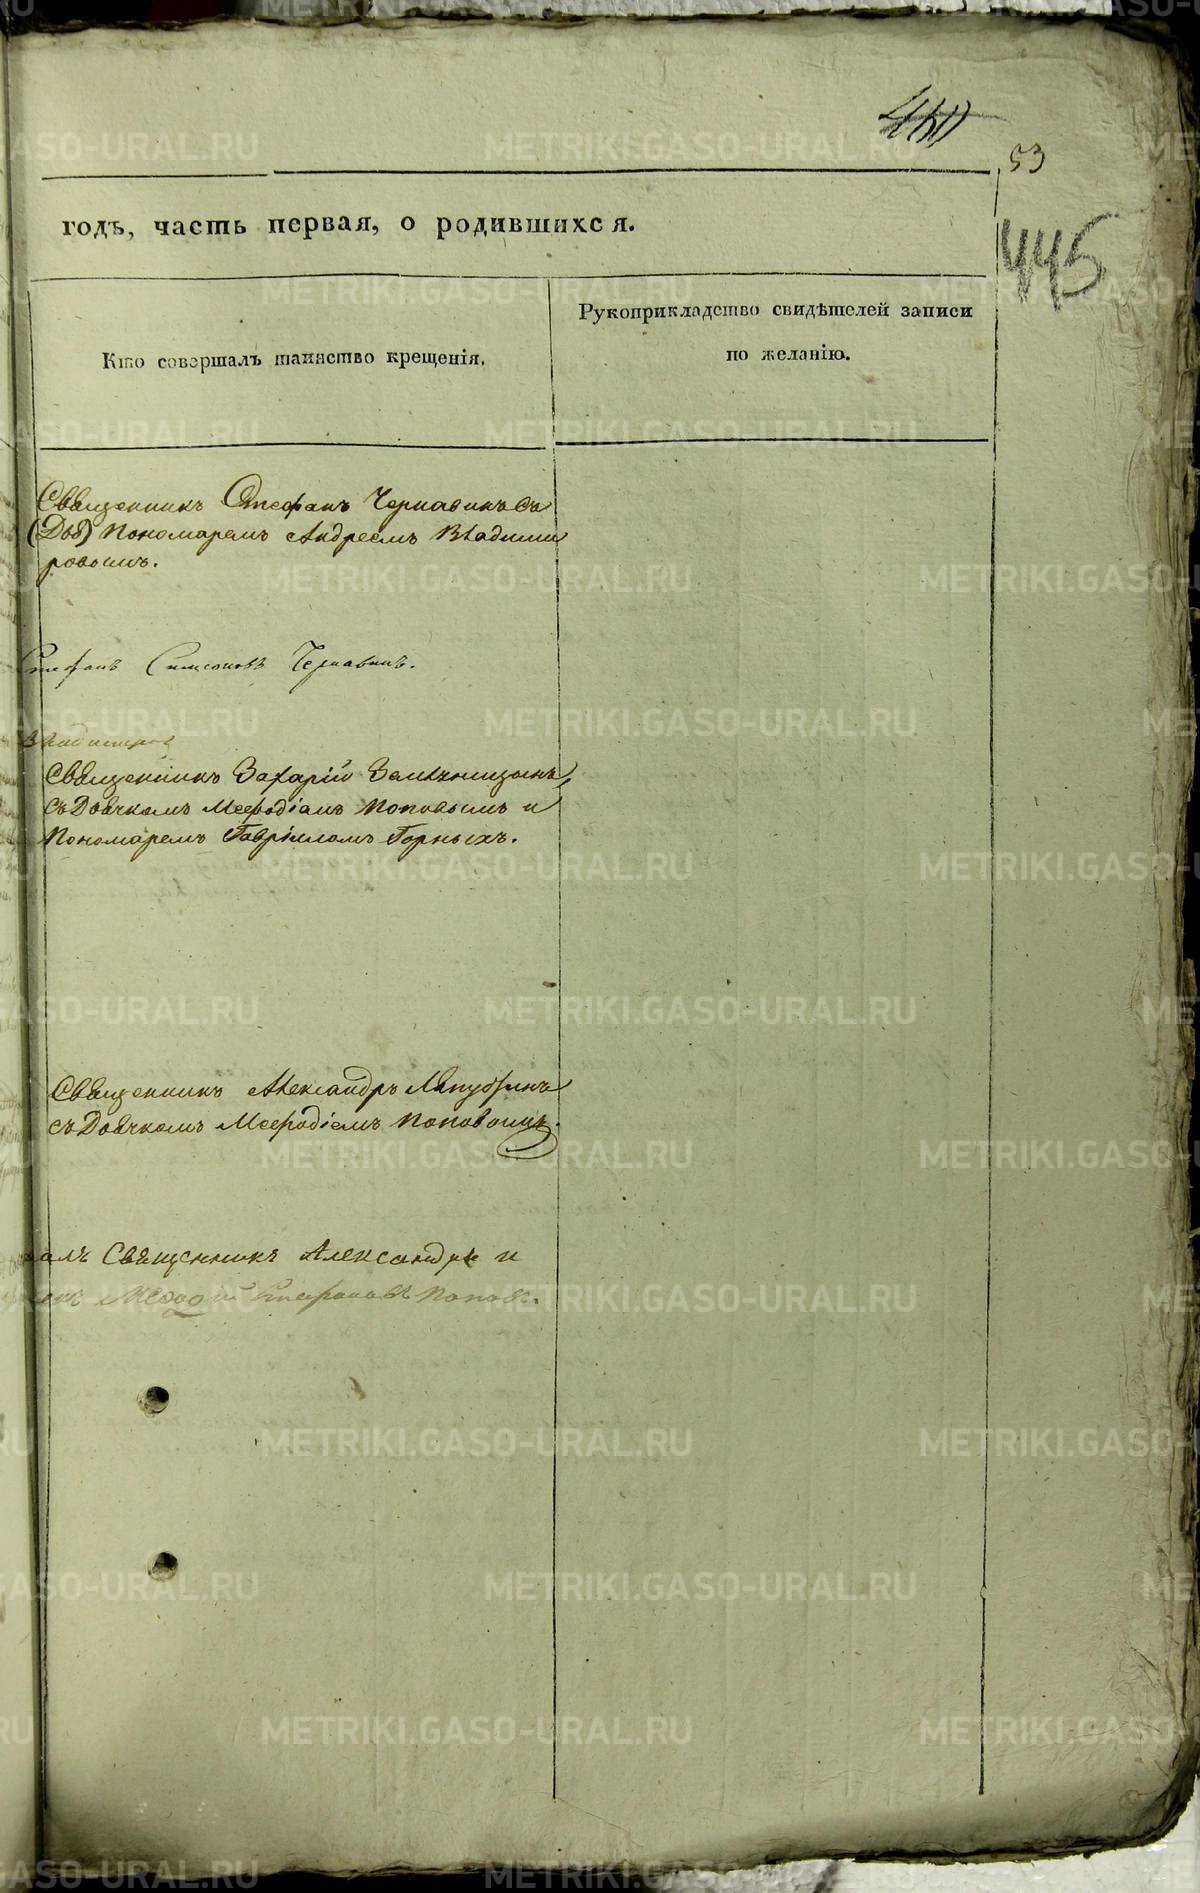 53
445
годъ, часть первая, о родившихся.
Кто совершалъ таинство крещенія.
Рукоприкладство свидѣтелей записи
по желанію.
Священникъ Стефанъ Чернавинъ съ
Пономаремъ Андреемъ Владими
ровымъ.
Стефанъ Симеоновъ Чернавинъ.
Священникъ Захарій
съ Дьячкомъ Меѳодіемъ Поповымъ и
Пономаремъ Гавріиломъ Горныхъ.
Священникъ Александръ
съ Дьячкомъ Меѳодіемъ Поповымъ.
Священникъ Александръ и
Меѳодій Стефановъ Поповъ.
METRIKI.GASO-URAL.RU